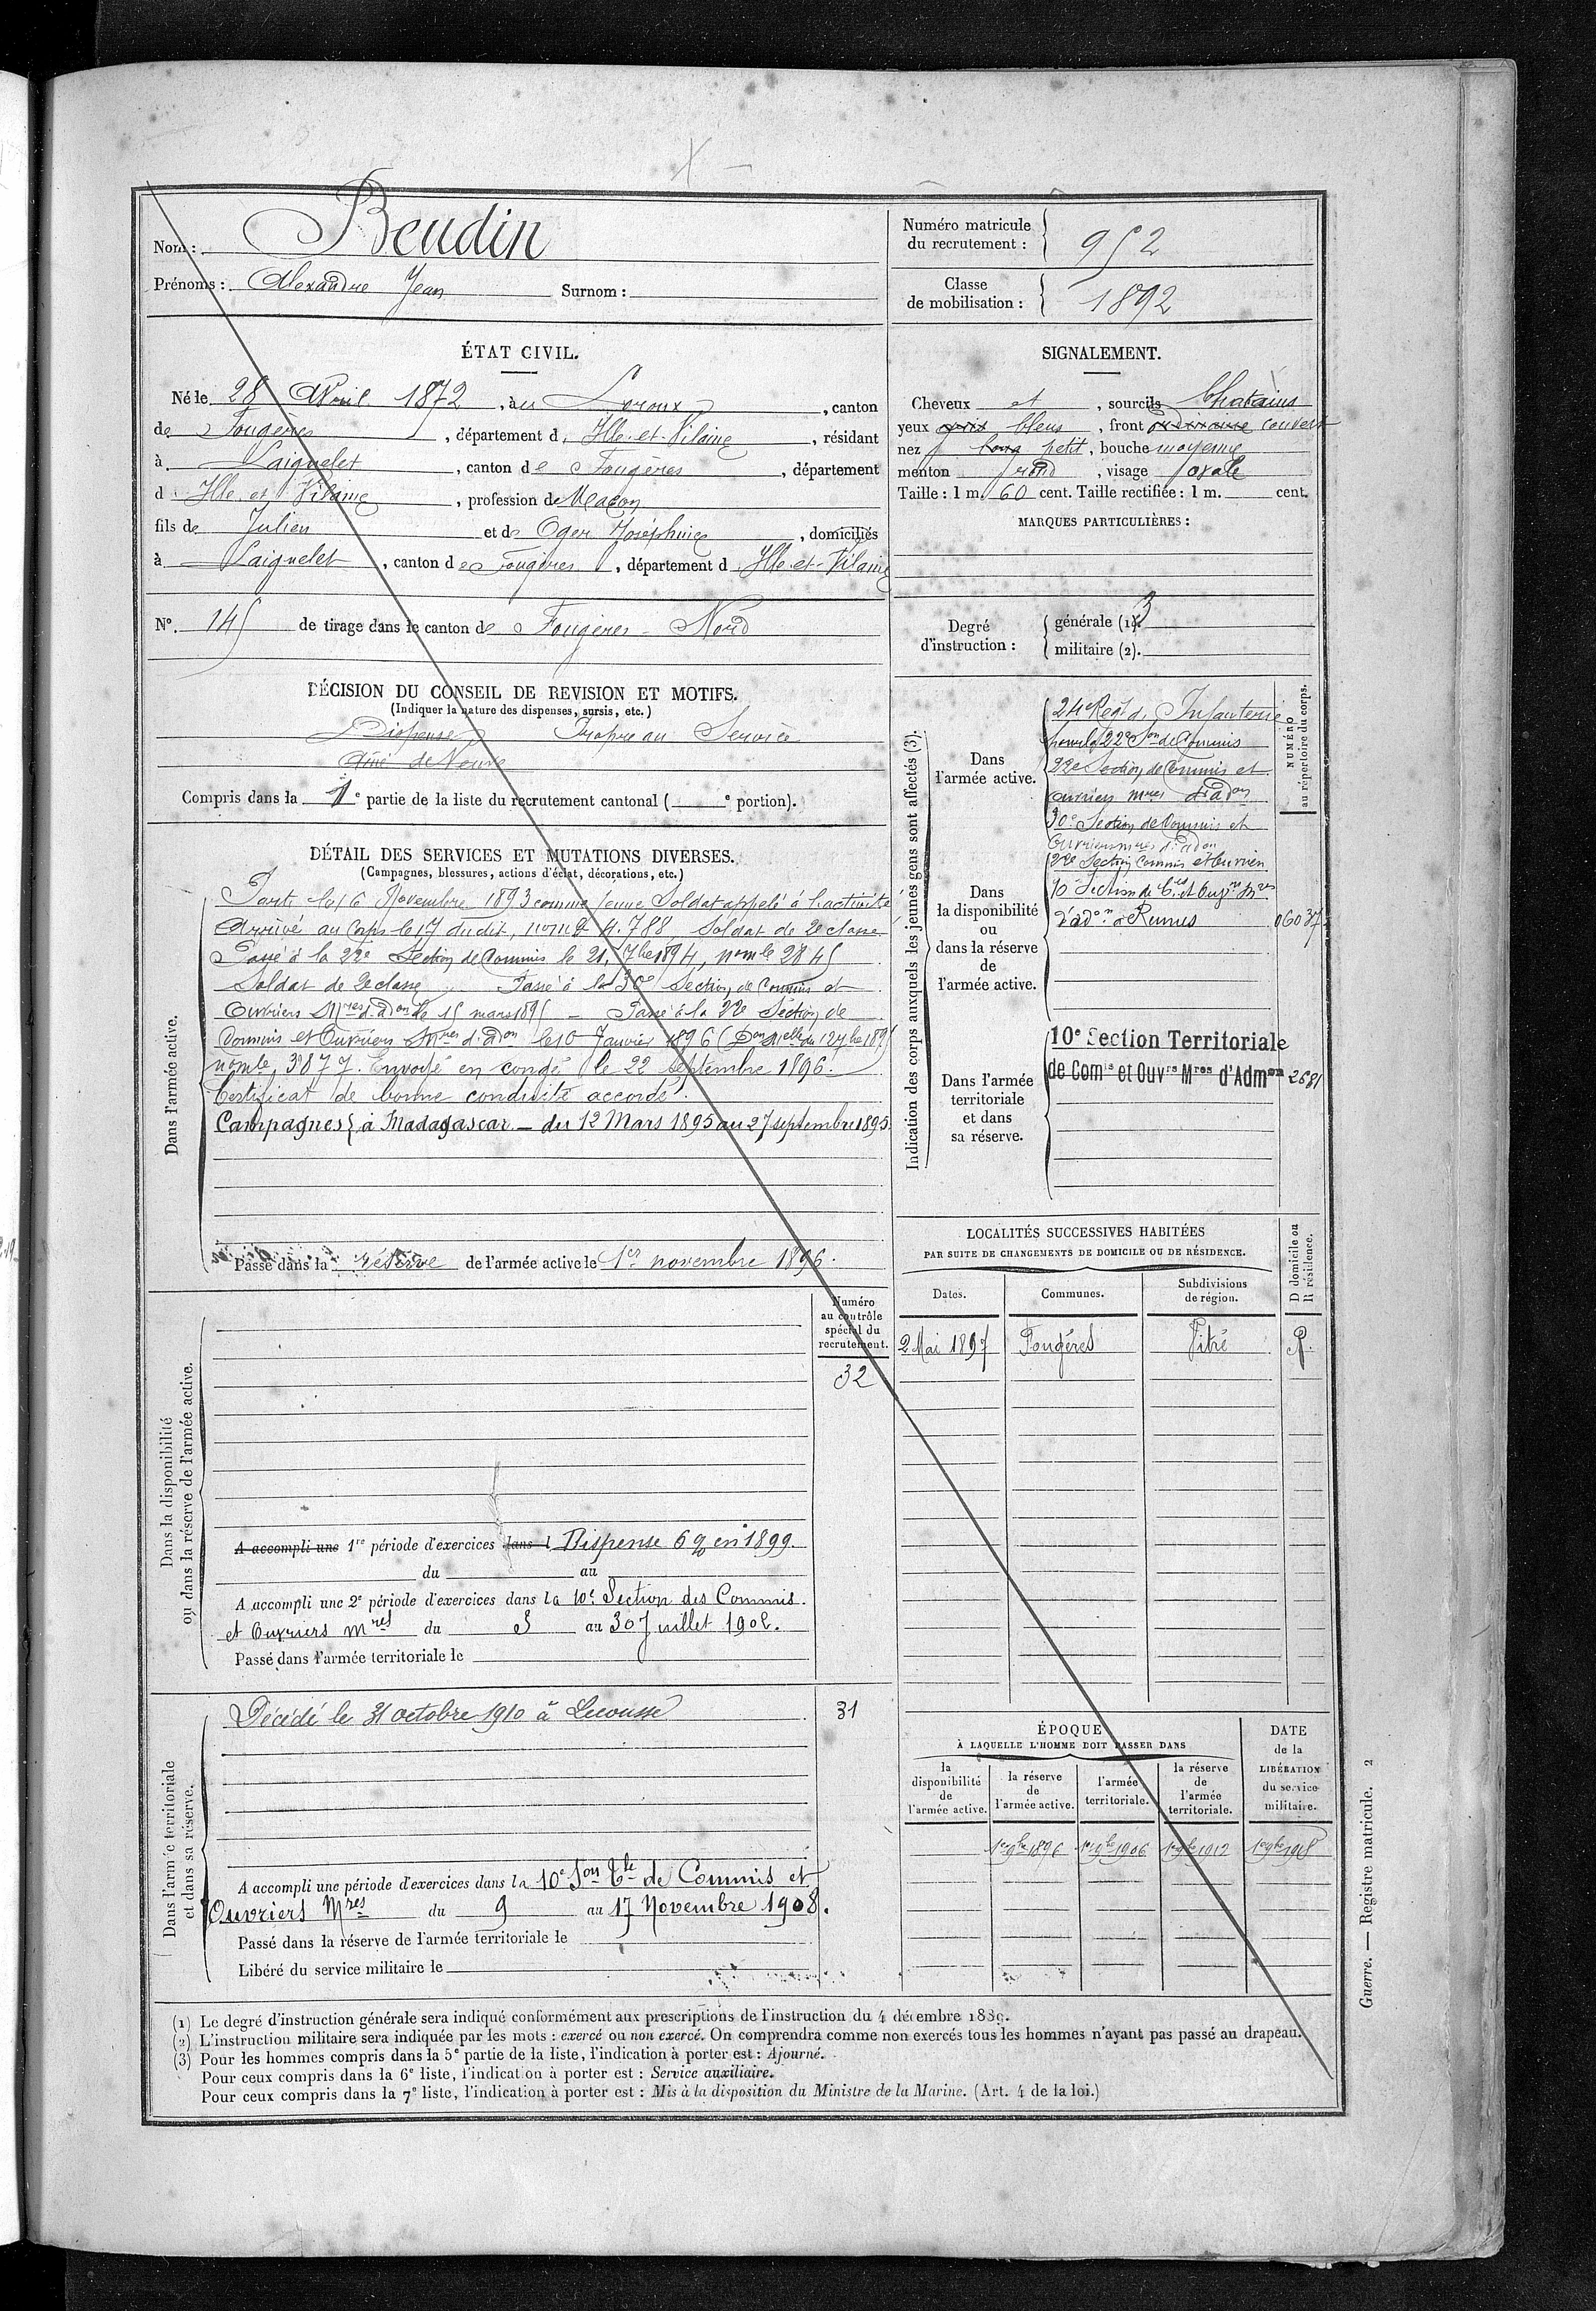 Nom : Beudin
Prénoms : Alexandre Jean Surnom :
Numéro matricule
du recrutement : 952
Classe
de mobilisation : 1892
ÉTAT CIVIL.
Né le 28 Avril 1872, à Leroux, canton
de Fougères, département d Ille-et-Vilaine, résidant
à Laignelet, canton de Fougères, département
d Ille et Vilaine, profession de Maçon
fils de Julien et de Oger Joséphine, domiciliés
à Laignelet, canton de Fougères, département d Ille-et-Vilaine
N°. 145 de tirage dans le canton de Fougères-Nord
SIGNALEMENT.
Cheveux et, sourcils Chatains
yeux gris bleus, front ordinaire couvert
nez long petit, bouche moyenne
menton rond, visage ovale
Taille : 1 m. 60 cent. Taille rectifiée : 1 m. cent.
MARQUES PARTICULIÈRES :
Degré
d'instruction :
générale (1). 3
militaire (2).
DÉCISION DU CONSEIL DE REVISION ET MOTIFS.
(Indiquer la nature des dispenses, sursis, etc.)
Dispensé Propre au Service
Ainé de Veuve
Compris dans la 1e partie de la liste du recrutement cantonal ( e portion).
DÉTAIL DES SERVICES ET MUTATIONS DIVERSES.
(Campagnes, blessures, actions d'éclat, décorations, etc.)
Dans l'armée active.
Parti le 16 Novembre 1893 comme jeune Soldat appelé à l'activité
Arrivé au Corps le 17 du dit, 4.788, Soldat de 2e classe
Passé à la 22e Section de Commis le 21, 7bre 1894, nom le 2845
Soldat de 2e classe Passé à la 30e Section de Commis et
Ouvriers Mres d'adon le 15 mars 1895 - Passé à la 22e Section de
Commis et Ouvriers Mres d'adon le 10 Janvier 1896 (Don Mielle du 127bre 1895
nom le 3877. Envoyé en congé le 22 septembre 1896.
Certificat de bonne conduite accordé.
Campagnes} à Madagascar - du 12 Mars 1895 au 27 septembre 1895.
Passé dans la réserve de l'armée active le 1er novembre 1896.
Indication des corps auxquels les jeunes gens sont affectés (3).
NUMÉRO
au répertoire du corps.
Dans
l'armée active.
24e Regt d'Infanterie
pour la 22e Son de Commis
22e Section de Commis et
ouvriers mres d'adon
30e Section de Commis et
Ouvriers mres d'adon
22e Section Commis et Ouvriers
Dans
la disponibilité
ou
dans la réserve
de
l'armée active.
10e Section de Cis et Ouvrs Mres
d'adon à Rennes
Dans l'armée
territoriale
et dans
sa réserve.
10e Section Territoriale
de Comis et Ouvrs Mres d'Admon 2681
LOCALITÉS SUCCESSIVES HABITÉES
PAR SUITE DE CHANGEMENTS DE DOMICILE OU DE RÉSIDENCE.
D domicile ou
R résidence.
Dates. Communes. Subdivisions
de région.
2 Mai 1897 Fougères Vitré R.
Dans la disponibilité
ou dans la réserve de l'armée active.
Numéro
au contrôle
spécial du
recrutement.
32
A accompli une 1re période d'exercices dans l Dispensé 69 en 1899.
du au
A accompli une 2e période d'exercices dans la 10e Section des Commis
et Ouvriers mres du 3 au 30 Juillet 1902.
Passé dans l'armée territoriale le
Dans l'armée territoriale
et dans sa réserve.
Décédé le 31 octobre 1910 à Lecousse
31
A accompli une période d'exercices dans la 10e Son Tle de Commis et
Ouvriers Mres du 9 au 17 Novembre 1908.
Passé dans la réserve de l'armée territoriale le
Libéré du service militaire le
ÉPOQUE
À LAQUELLE L'HOMME DOIT PASSER DANS
DATE
de la
LIBÉRATION
du service
militaire.
la
disponibilité
de
l'armée active.
la réserve
de
l'armée active.
l'armée
territoriale.
la réserve
de
l'armée
territoriale.
1er 9bre 1896 1er 9bre 1906 1er 9bre 1912 1er 9bre 1918
(1) Le degré d'instruction générale sera indiqué conformément aux prescriptions de l'instruction du 4 décembre 1889.
(2) L'instruction militaire sera indiquée par les mots : exercé ou non exercé. On comprendra comme non exercés tous les hommes n'ayant pas passé au drapeau.
(3) Pour les hommes compris dans la 5e partie de la liste, l'indication à porter est : Ajourné.
Pour ceux compris dans la 6e liste, l'indication à porter est : Service auxiliaire.
Pour ceux compris dans la 7e liste, l'indication à porter est : Mis à la disposition du Ministre de la Marine. (Art. 4 de la loi.)
Guerre. — Registre matricule. 2